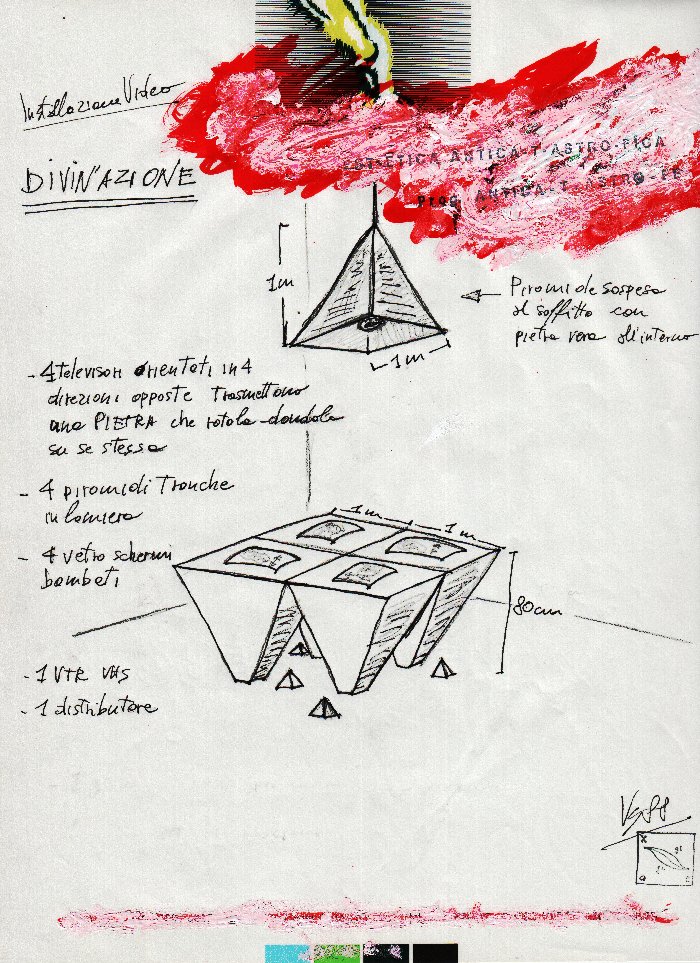 Installazione Video
DIVIN'AZIONE
EST-ETICA ANTICA-T-ASTRO-FICA
PROG. ANTICA-T-ASTRO-FE
1m
1m
Piramide sospesa
al soffitto con
pietra vera all'interno
- 4 televisori orientati in 4
direzioni opposte trasmettono
una PIETRA che rotola dondola
su se stessa
- 4 piramidi Tronche
in lamiera
- 4 vetro schermi
bombati
1m
1m
80cm
- 1 VTR VHS
- 1 distributore